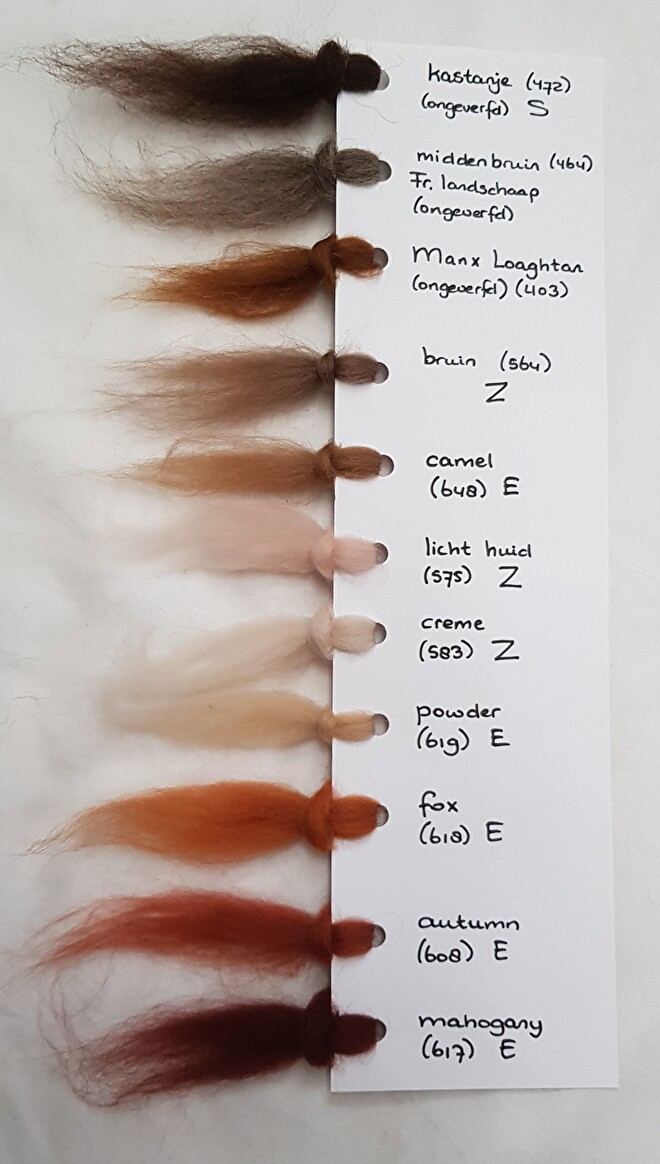 kastanje (472)
(ongeverfd) S
middenbruin (464)
Fr. landschaap
(ongeverfd)
Manx Loaghtan
(ongeverfd) (403)
bruin (564)
Z
camel
(648) E
licht huid
(575) Z
creme
(583) Z
powder
(619) E
fox
(618) E
autumn
(608) E
mahogany
(617) E